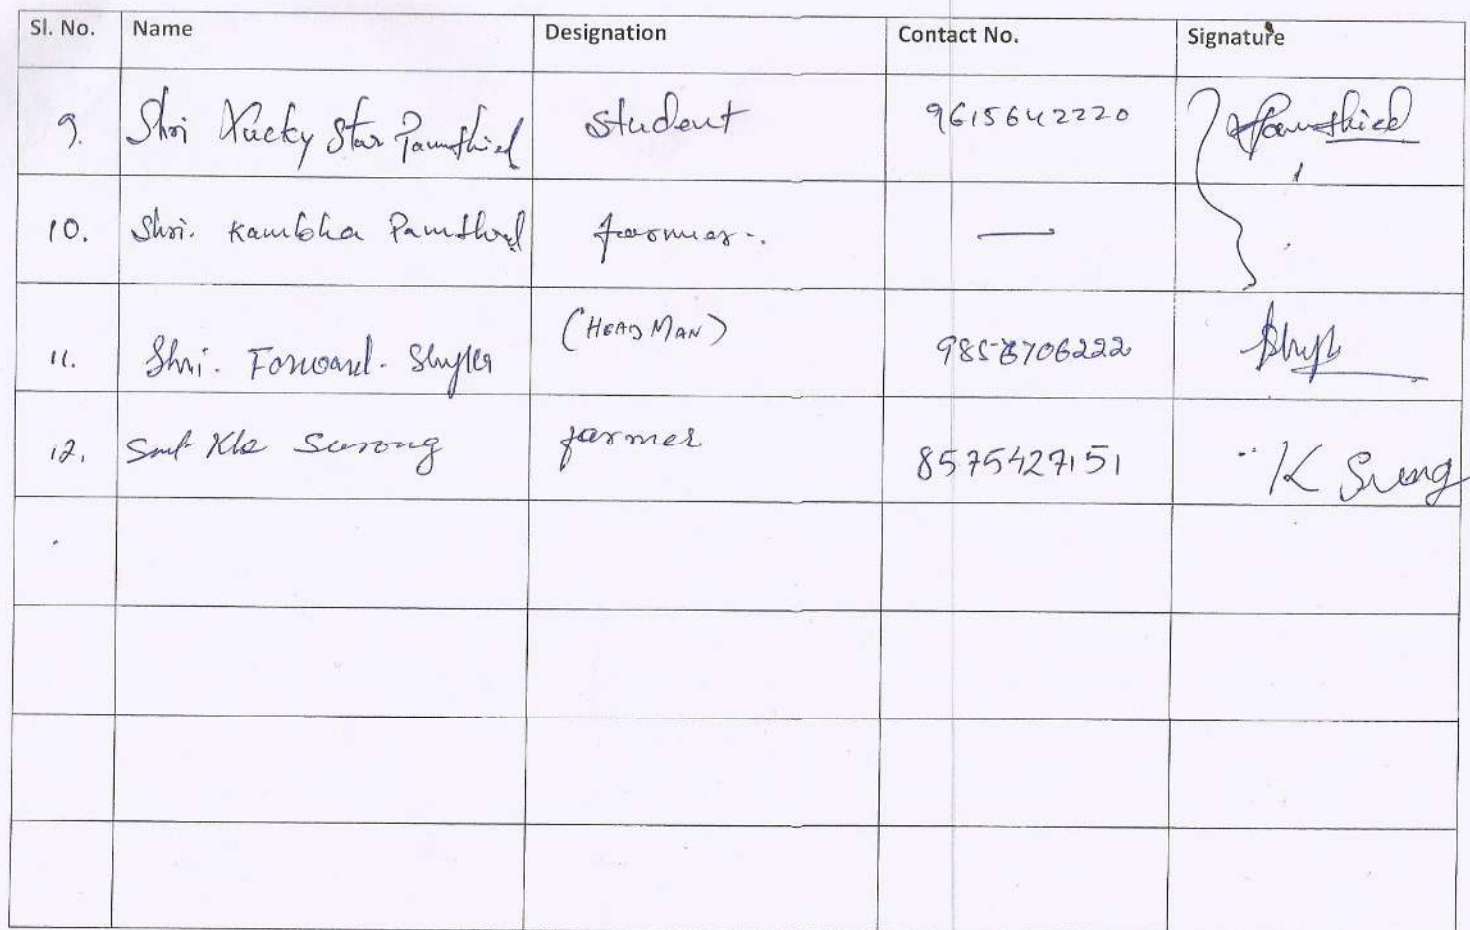 Sl. No. Name Designation Contact No. Signature
9. Shri Lucky Star Pamthied student 9615642220 Pamthied
10. Shri. Kambha Pamthied farmer. —
11. Shri. Forward. Shylla (HEAD MAN)
12. Smt Surong farmer 8575427151 K Surong